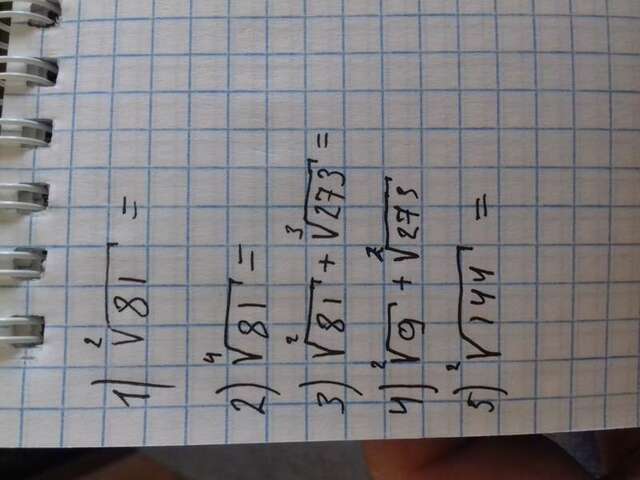 1) ²√81 =
2) ⁴√81 =
3) ²√81 + ³√273 =
4) ²√9 + ²√273
5) ²√144 =